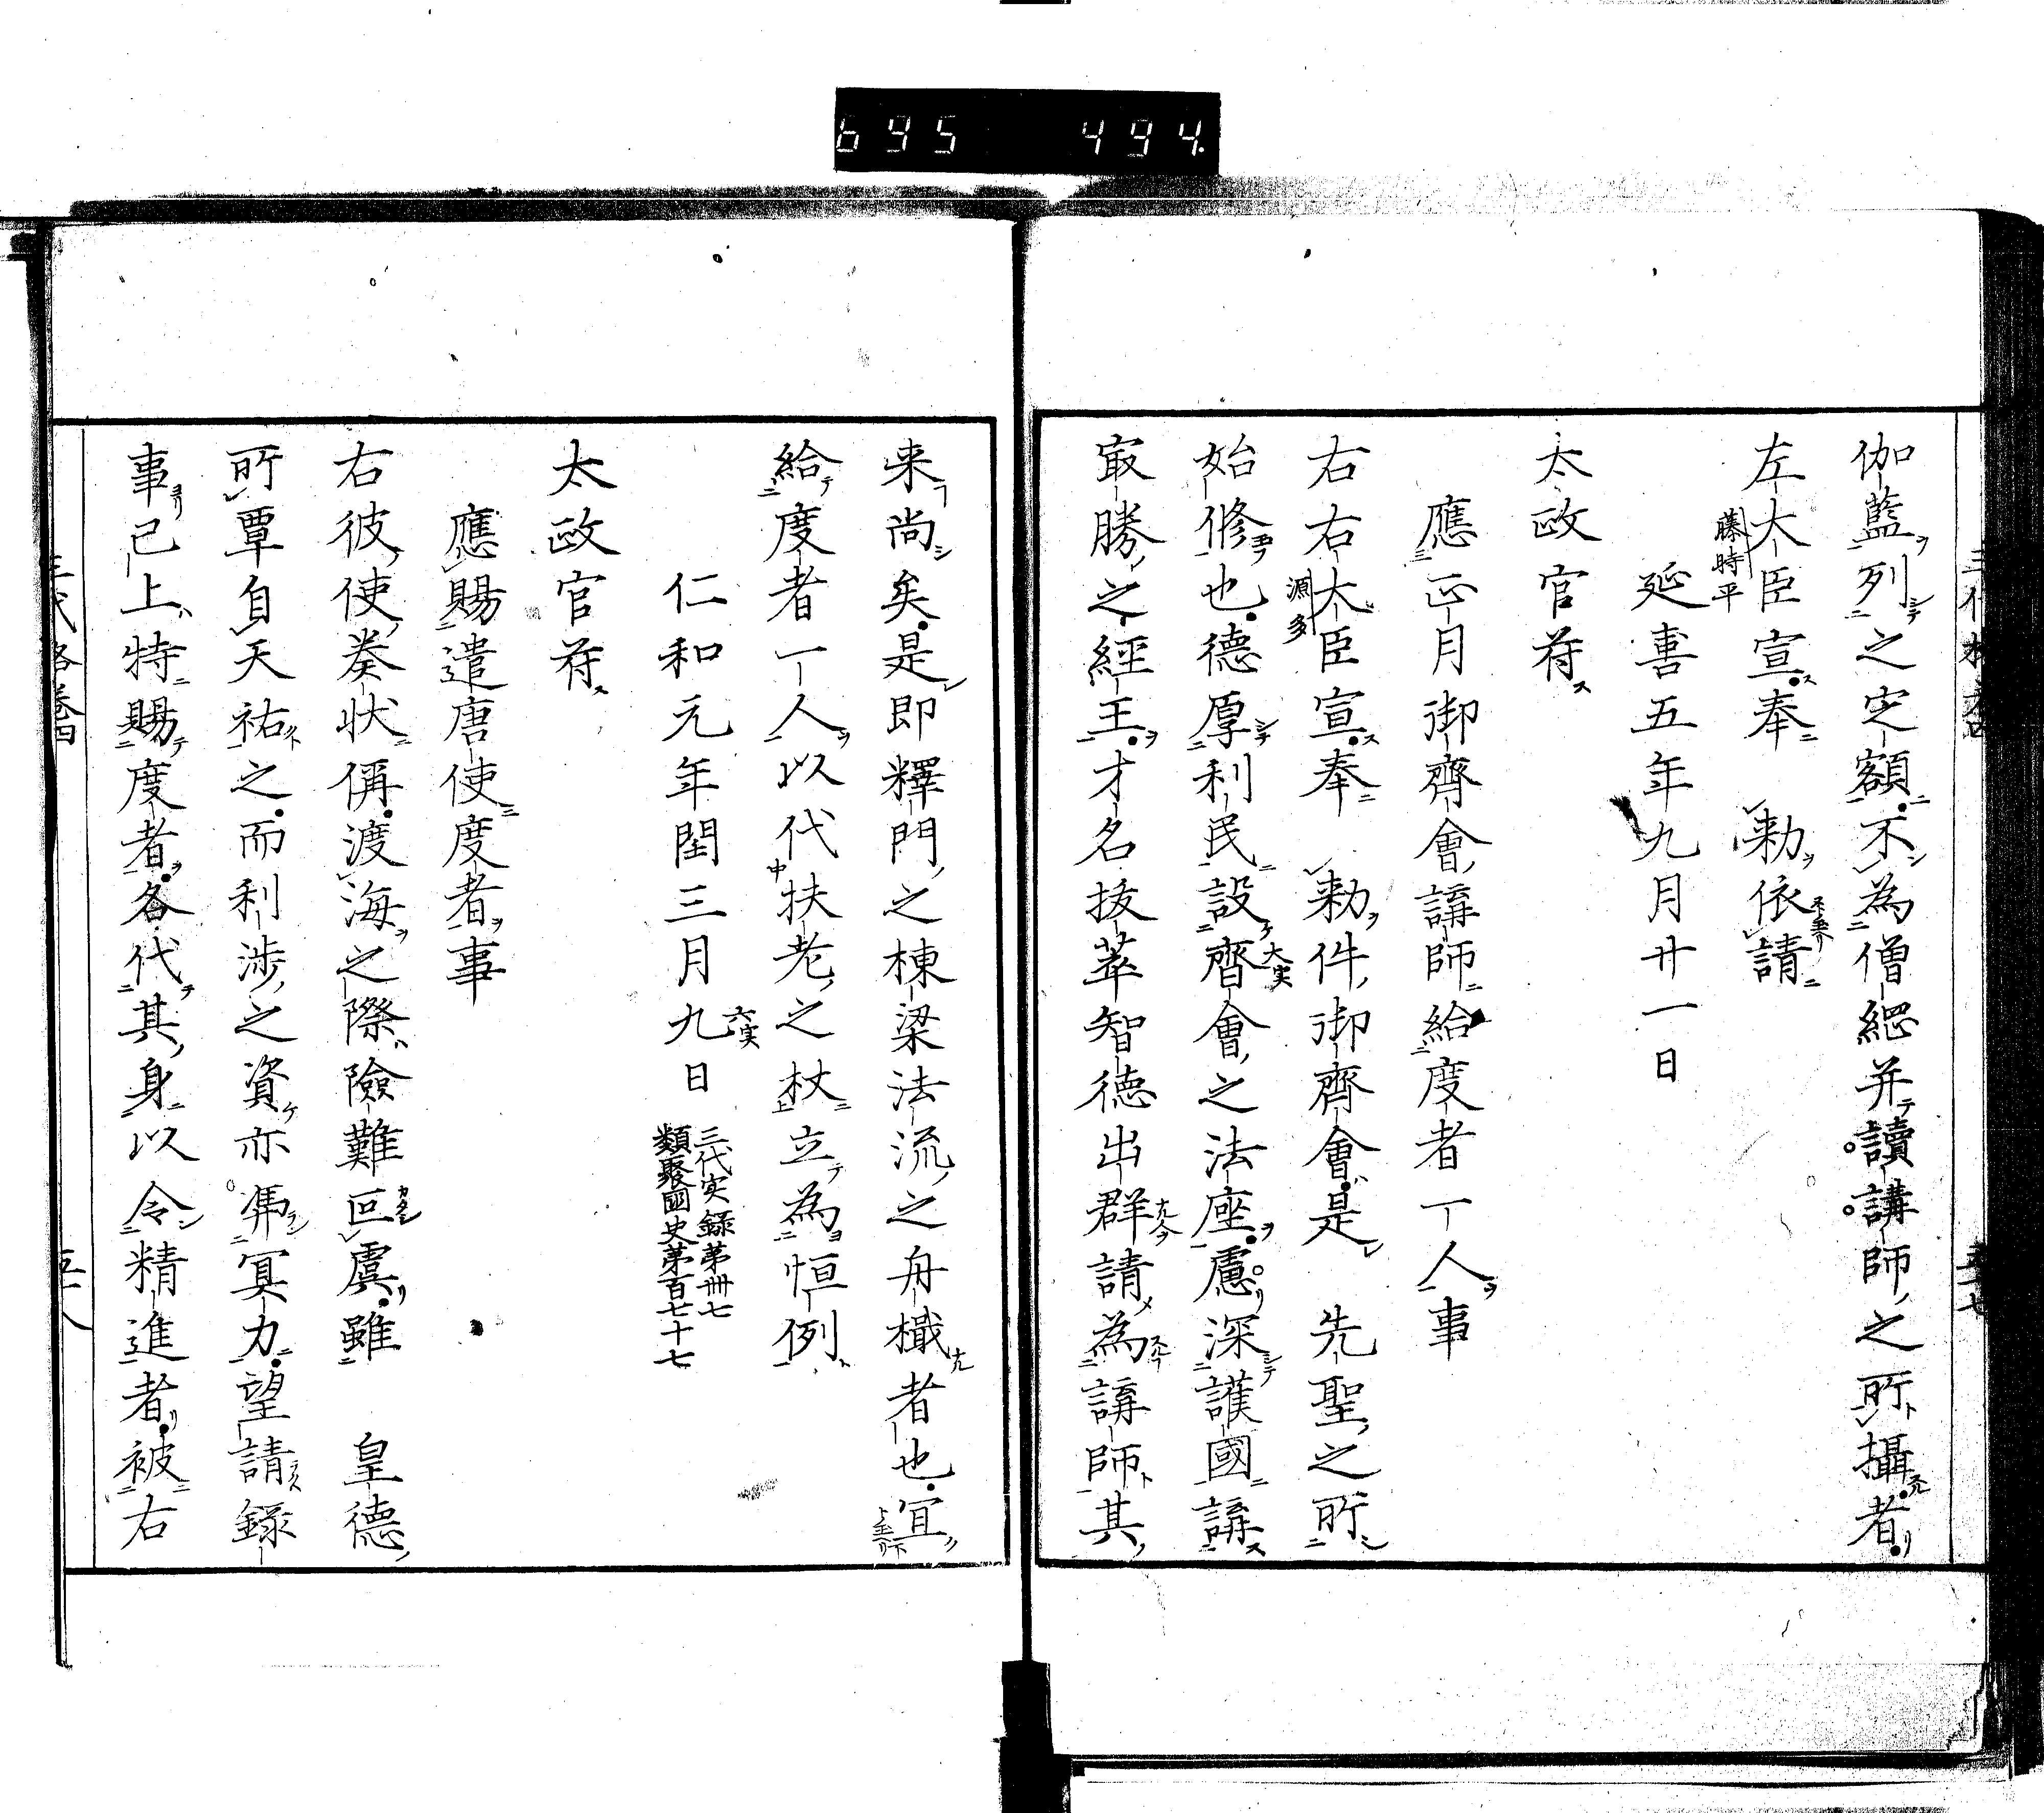 695 494
伽藍列之定額不為僧綱并讀講師之所攝者
左大臣宣奉　勅依請
藤時平
延喜五年九月廿一日
太政官符
應正月御齊會講師給度者一人事
右右大臣宣奉　勅件御齊會是　先聖之所
源多
始修也德厚利民設齊會之法座慮深護國講
大実
㝡勝之經王才名拔萃智德出群請為講師其
来尚矣是即釋門之棟梁法流之舟檝者也宜
給度者一人以代扶老之杖立為恒例
仁和元年閏三月九日
六実
三代实録第卌七
類聚國史第百七十七
太政官符
應賜遣唐使度者事
右彼使奏状偁渡海之際險難叵虞雖　皇德
所覃自天祐之而利涉之資亦馮冥力望請錄
事已上特賜度者各代其身以令精進者被右